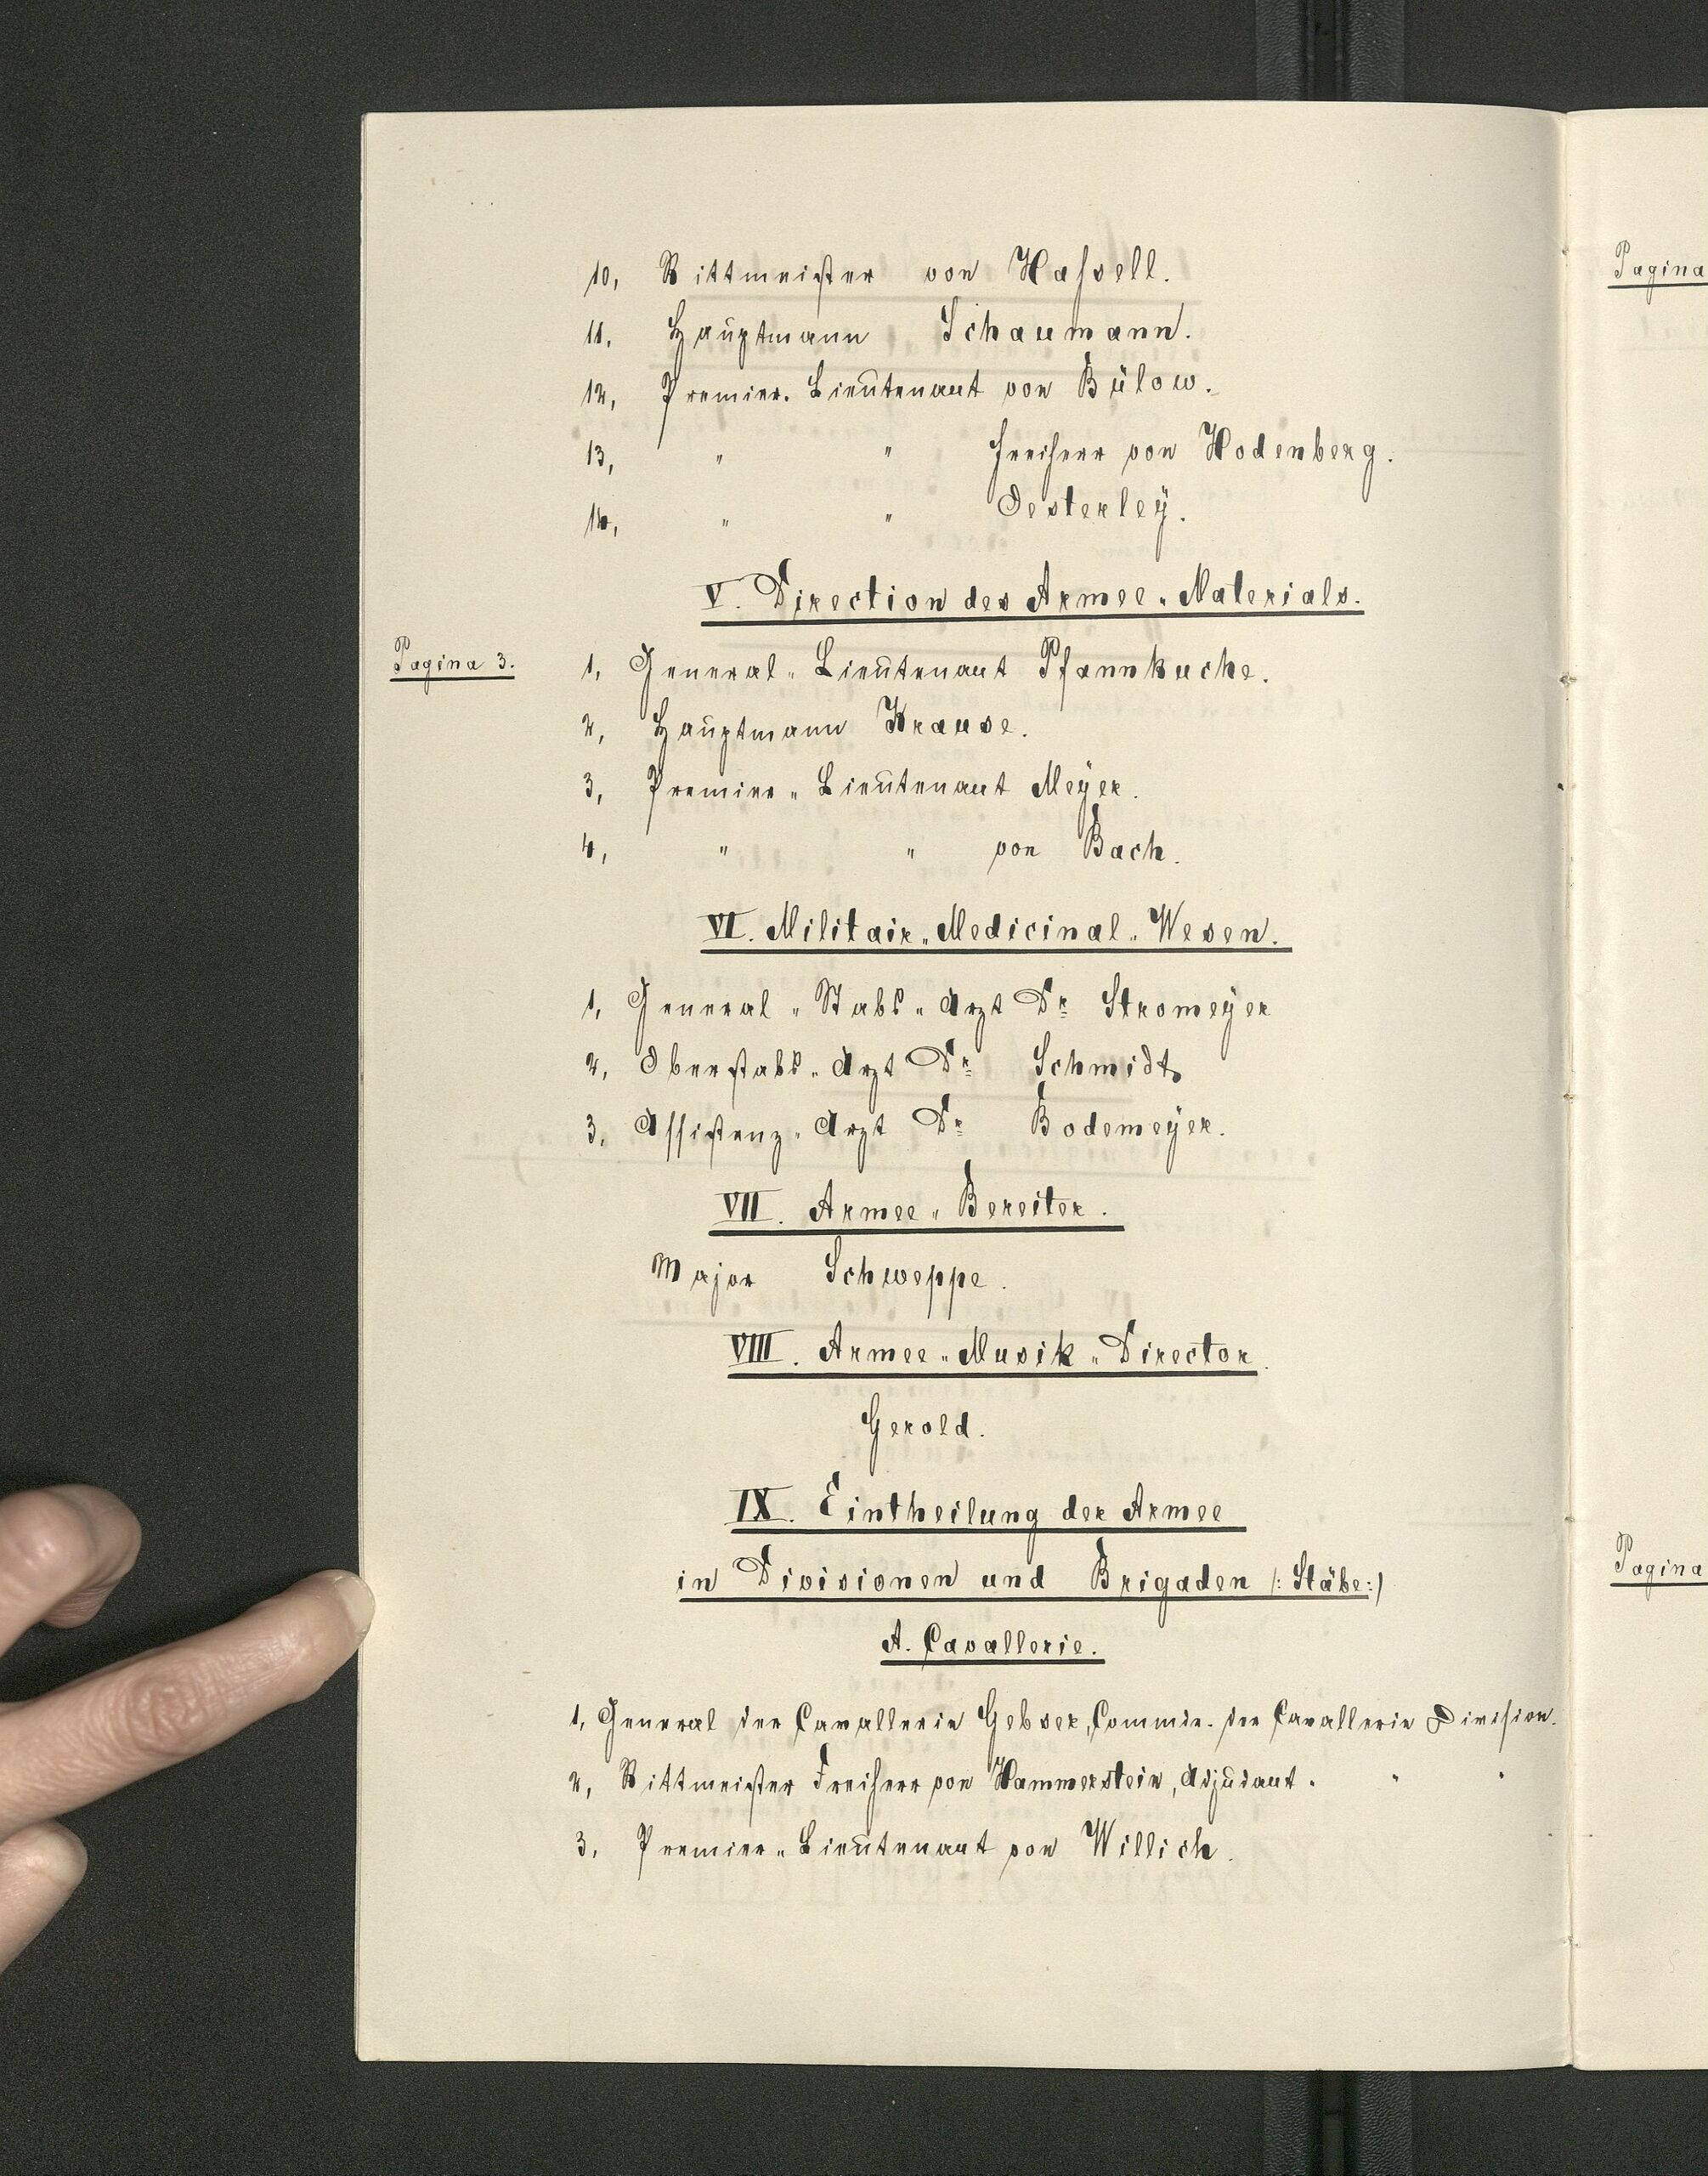 10, Rittmeister von Hassell.
11. Hauptmann Schaumann.
12, Premier. Lieutenant von Bülow.
13, " " Freiherr von Hodenberg.
14, " " Oesterleÿ.
V. Direction des Armee-Materials.
Pagina 3.
1, General-Lieutenant Pfannkuche.
2, Hauptmann Krause.
3, Premier-Lieutenant Meÿer.
4, " " von Bach.
VI. Militair-Medicinal-Wesen.
1, General-Stabs-Arzt Dr Stromeÿer
2, Oberstabs-Arzt Dr Schmidt
3, Assistenz-Arzt Dr Bodemeÿer.
VII. Armee-Bereiter.
Major Schweppe.
VIII. Armee-Musik-Director.
Gerold.
IX. Eintheilung der Armee
in Divisionen und Brigaden /: Stäbe:/
A. Cavallerie.
1, General der Cavallerie Gebser, Commdr. der Cavallerie Division.
2, Rittmeister Freiherr von Hammerstein, Adjudant. " "
3, Premier-Lieutenant von Willich.
Pagina
Pagina